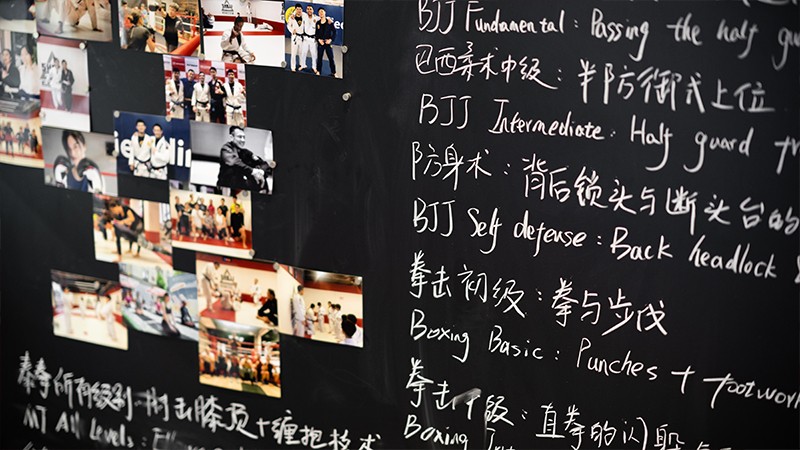 BJJ Fundamental: Passing the half
巴西柔术中级：半防御式上位
BJJ Intermediate: Half guard
防身术：背后锁头与断头台的
BJJ Self defense: Back headlock &
拳击初级：拳与步伐
Boxing Basic: Punches + footwork
拳击中级：直拳的闪躲
Boxing
泰拳所有级别：肘击膝顶+缠抱技术
MT All Levels: